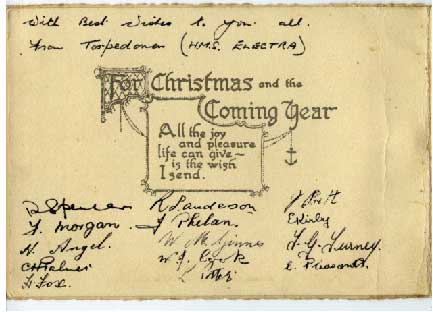 With Best Wishes to you all.
from Torpedomen (H.M.S. ELECTRA)
For Christmas and the
Coming Year
All the joy
and pleasure
life can give ~
is the wish
I send.
D Spencer R Sanderson
J. Morgan. J Phelan. E Kirby
H. Angel. W McGinnes F. G. Turney.
C H Palmer W. J. Cook E. Pleasant.
F. Fox.